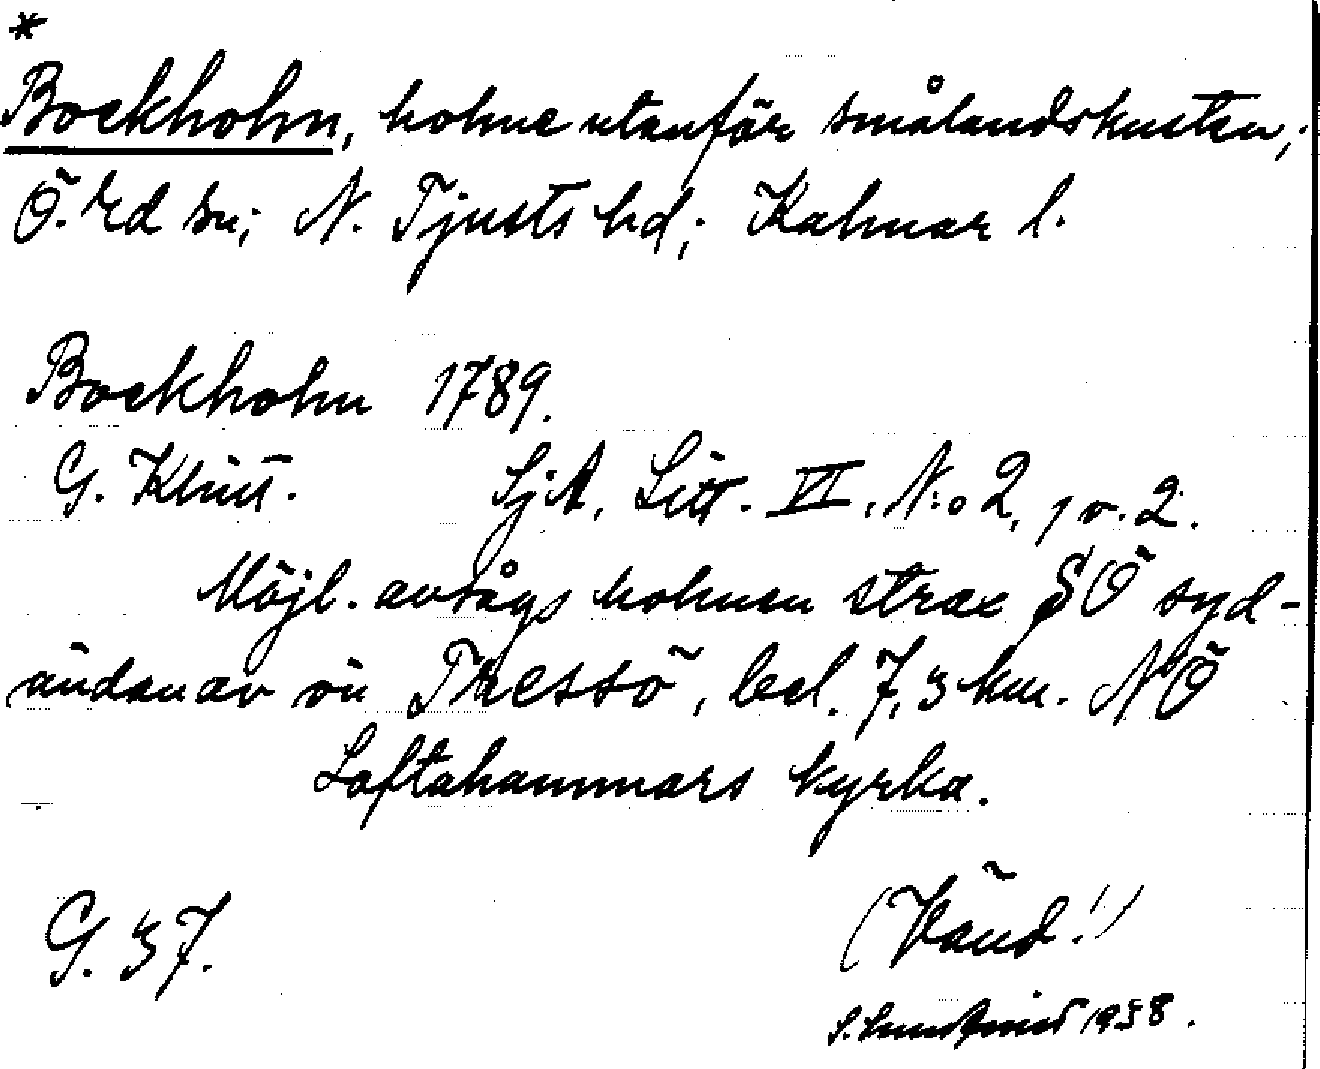 *
Bockholm, holme utanför smålandskusten;
Ö. Ed sn; N. Tjusts hd; Kalmar l.
Bockholm 1789.
G. Klint. SjA, Litt. VI, N:o 2, 1 v. 2.
Möjl. avsågs holmen strax SÖ syd-
ändan av ön Tressö, bel. 7,3 km. NÖ
Loftahammars kyrka.
G. 37. (Vänd!)
1958.